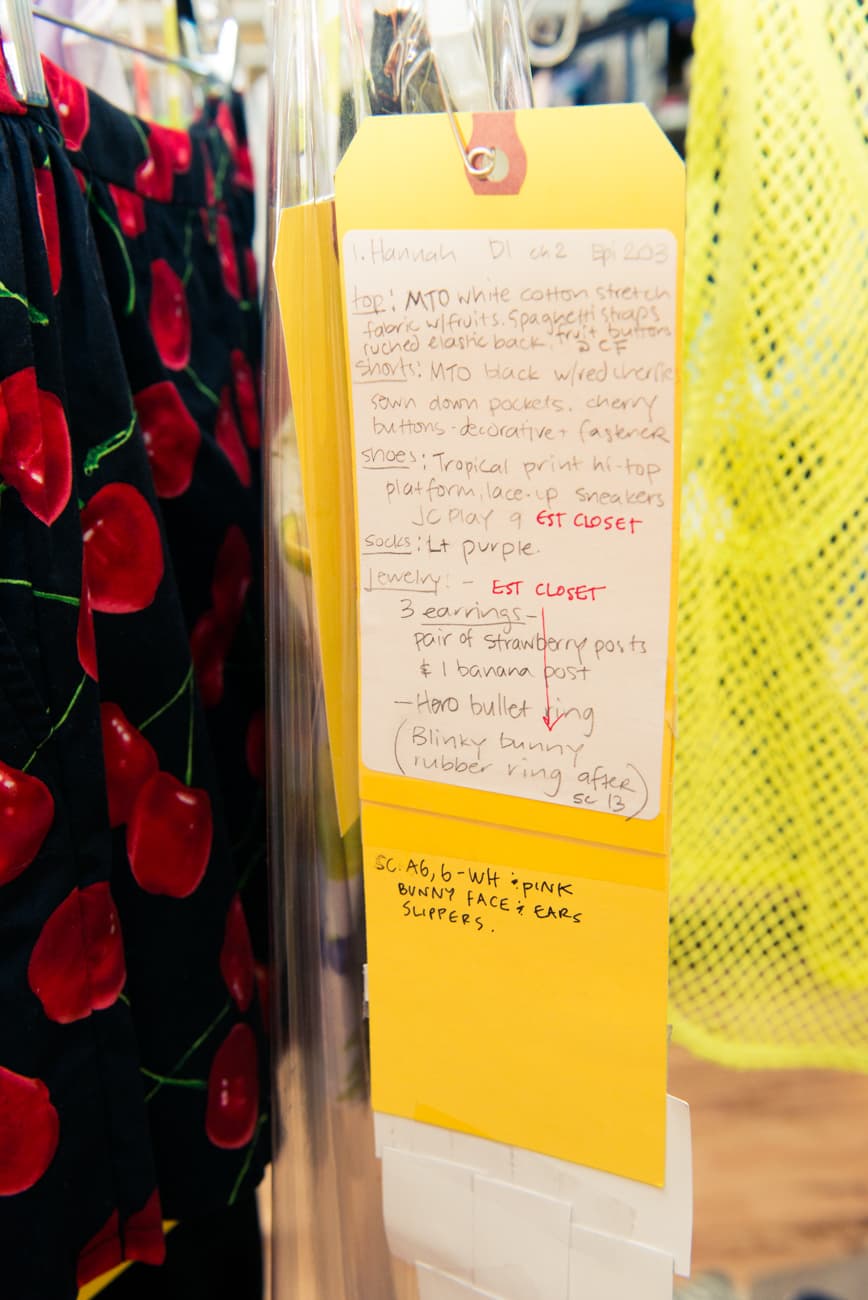 1. Hannah D1 ch 2 Epi 203
top: MTO white cotton stretch
fabric w/fruits. Spaghetti straps
ruched elastic back. fruit buttons
@ CF
shorts: MTO black w/red cherries
sewn down pockets. cherry
buttons - decorative + fastener
shoes: Tropical print hi-top
platform, lace-up sneakers
JC Play 9 EST CLOSET
socks: Lt purple.
Jewelry: - EST CLOSET
3 earrings -
pair of strawberry posts
& 1 banana post
- Hero bullet ring
(Blinky bunny
rubber ring after
SC 13)
SC. A6, 6 - WH & PINK
BUNNY FACE & EARS
SLIPPERS.